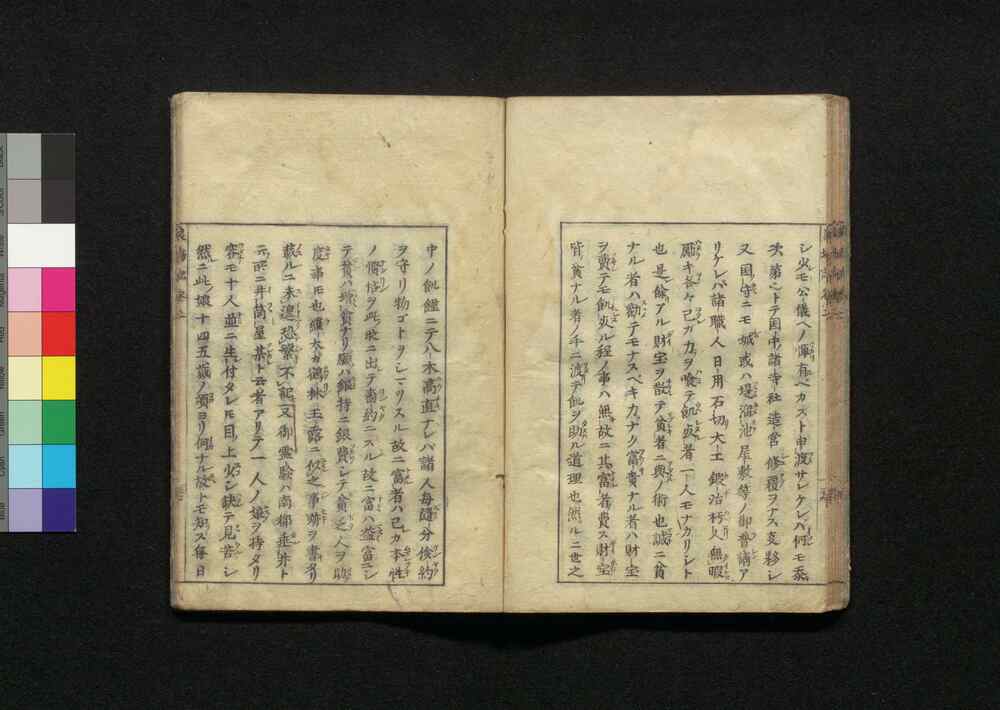 シ火モ公儀ヘノ憚有ベカズト申渡サレケレハ何モ忝
次第ヽトテ国中諸寺社造営修覆ヲナス支夥シ
又国守ニモ城或ハ堤溜池屋敷等ノ御普請ア
リケレバ諸職人日用石切大工鍛冶朽人無暇
雇キ各々己カ力ヲ喰テ飢疫者一人モナカリシト
也是餘アル財宝ヲ散テ貧者ニ與ノ術也誠ニ貧
ナル者ハ勸テモナスベキ力ナク富貴ナル者ハ財宝
ヲ費テモ飢疫ル程ノ事ハ無故ニ其富者費ス財宝
皆貧ナル者ノ手ニ渡テ飢ヲ助ル道理也然ルニ世之
中ノ飢饉ニテ八木高直ナレバ諸人毎隨分倹約
ヲ守リ物ゴトヲシマリスル故ニ富者ハ己カ本性
ノ慳悋ヲ此時ニ出テ嗇約ニスル故ニ富ハ益富ニシ
テ貧ハ増貧ナリ願ハ維持ニ銀賢シテ貧乏人ヲ助
度事モ也羅大カ鶴林玉露ニ似之事跡ヲ書タリ
載ルニ未遑恐繁不記又御霊験ハ南都垂井ト
云所ニ井筒屋某ト云者アリテ一人ノ娘ヲ持タリ
容モ十人並ニ生付タレ𪜈目ノ上少シ缺テ見苦シ
然ニ此ノ娘十四五歳ノ頃ヨリ何ナル故トモ知ス毎日